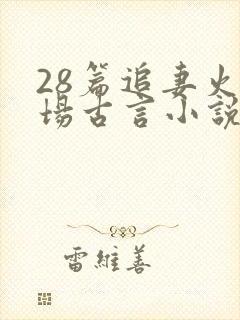 28篇追妻火
場古言小說
雷維善